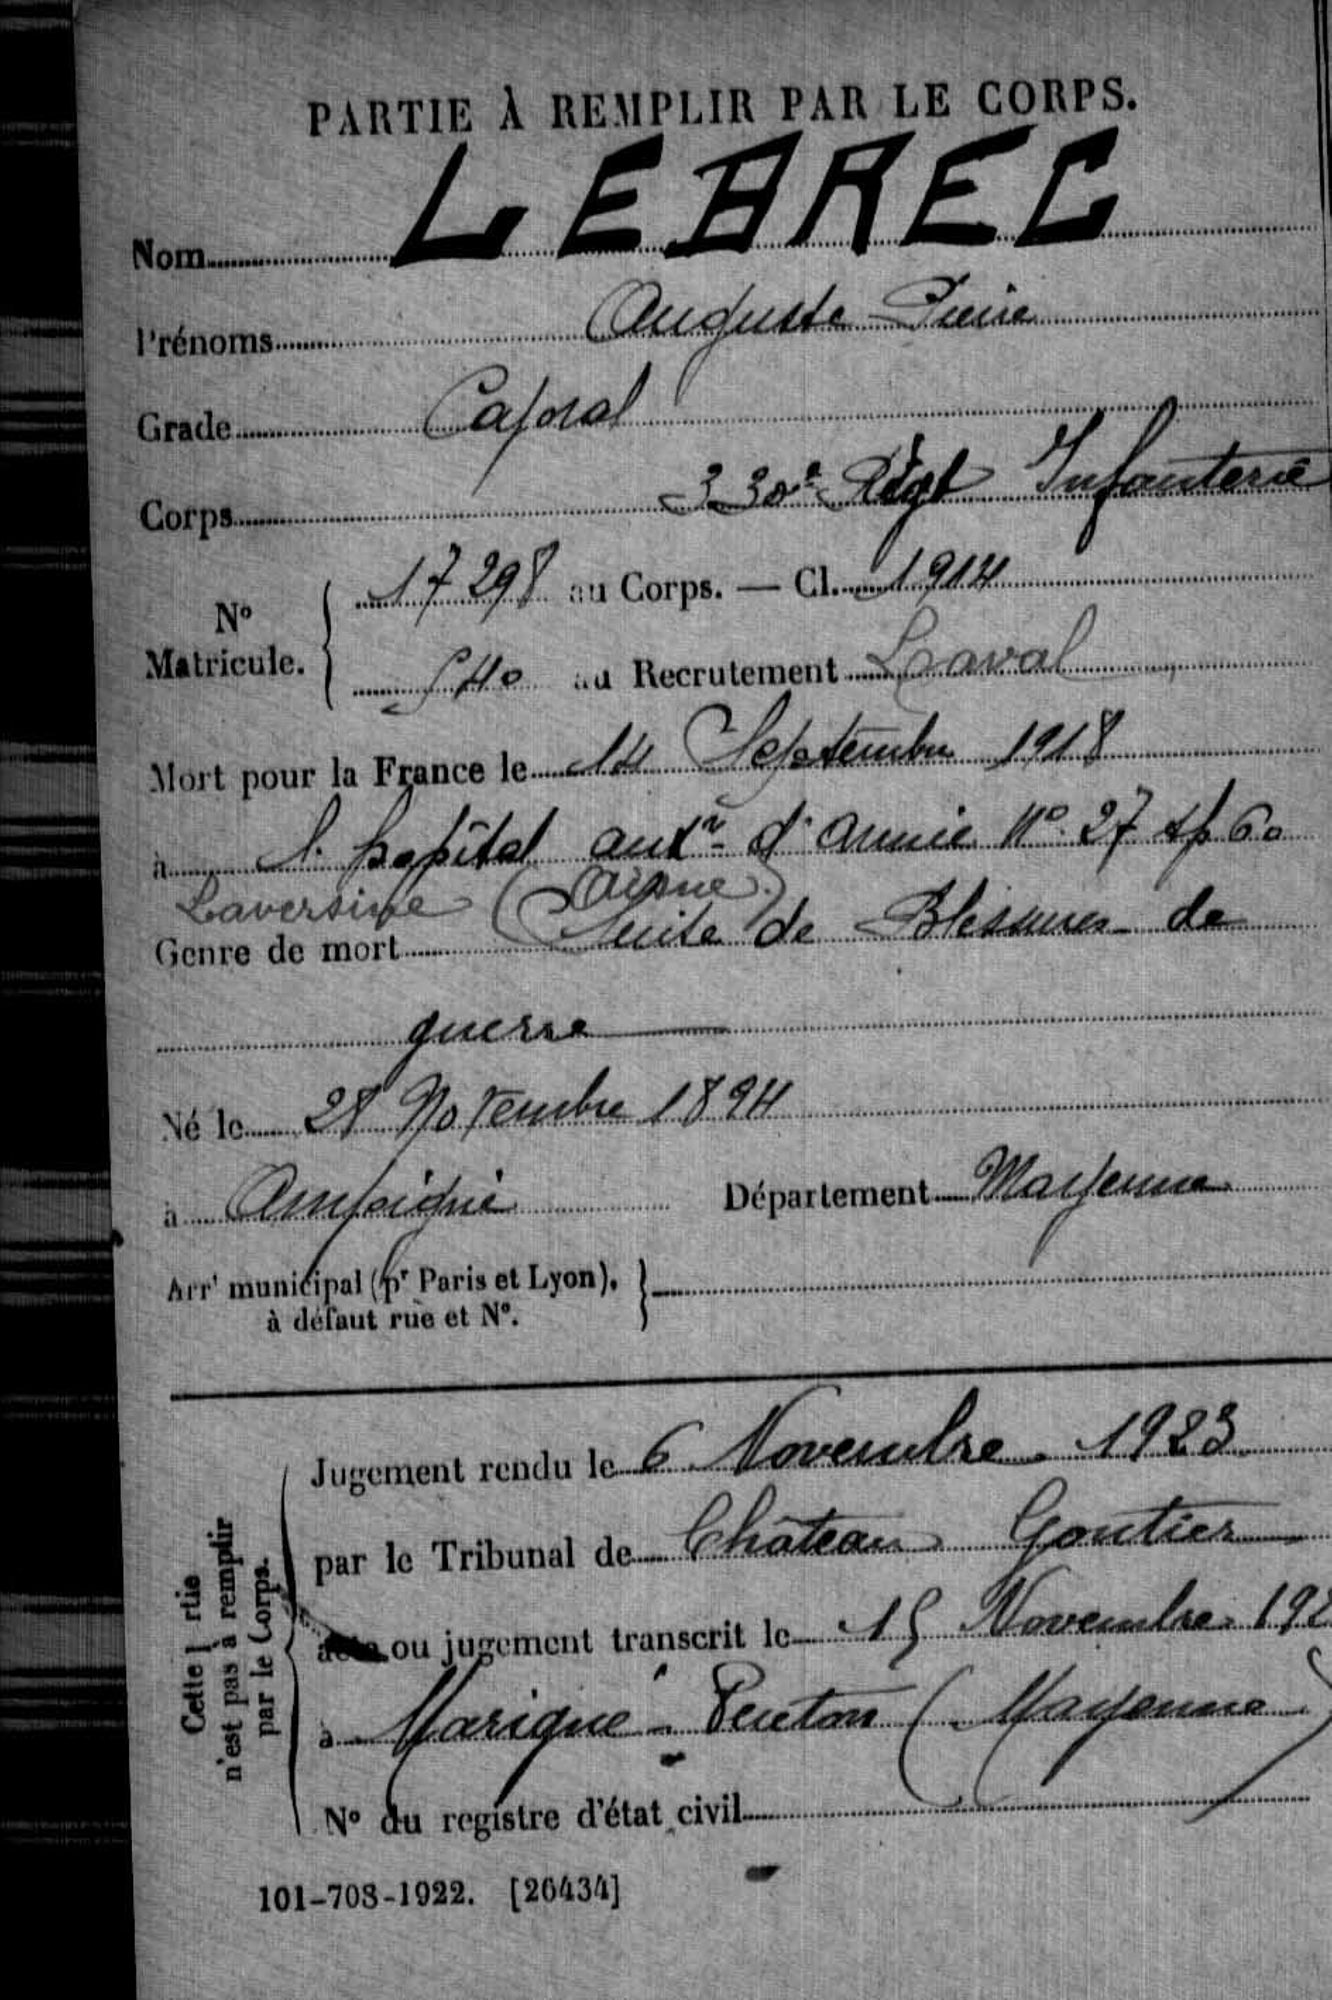 PARTIE À REMPLIR PAR LE CORPS.
Nom LEBREC
Prénoms Auguste Pierre
Grade Caporal
Corps 330e Régt Infanterie
N° Matricule. 17298 au Corps. — Cl. 1914
540 au Recrutement Laval
Mort pour la France le 14 Septembre 1918
à l'hopital auxre d'armée N° 27 sp 60
Laversine (Aisne)
Genre de mort Suite de Blessures de
guerre
Né le 28 Novembre 1894
à Ampoigné Département Mayenne
Arrt municipal (pr Paris et Lyon),
à défaut rue et N°.
Cette partie
n'est pas à remplir
par le Corps.
Jugement rendu le 6 Novembre 1923
par le Tribunal de Château Gontier
acte ou jugement transcrit le 15 Novembre 192
à Marigné-Peuton (Mayenne)
N° du registre d'état civil
101-708-1922. [26434]